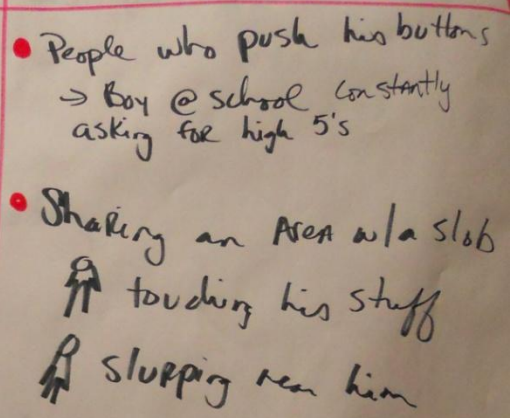 People who push his buttons
→ Boy @ school constantly
asking for high 5's
Sharing an area w/a slob
touching his stuff
slurping near him